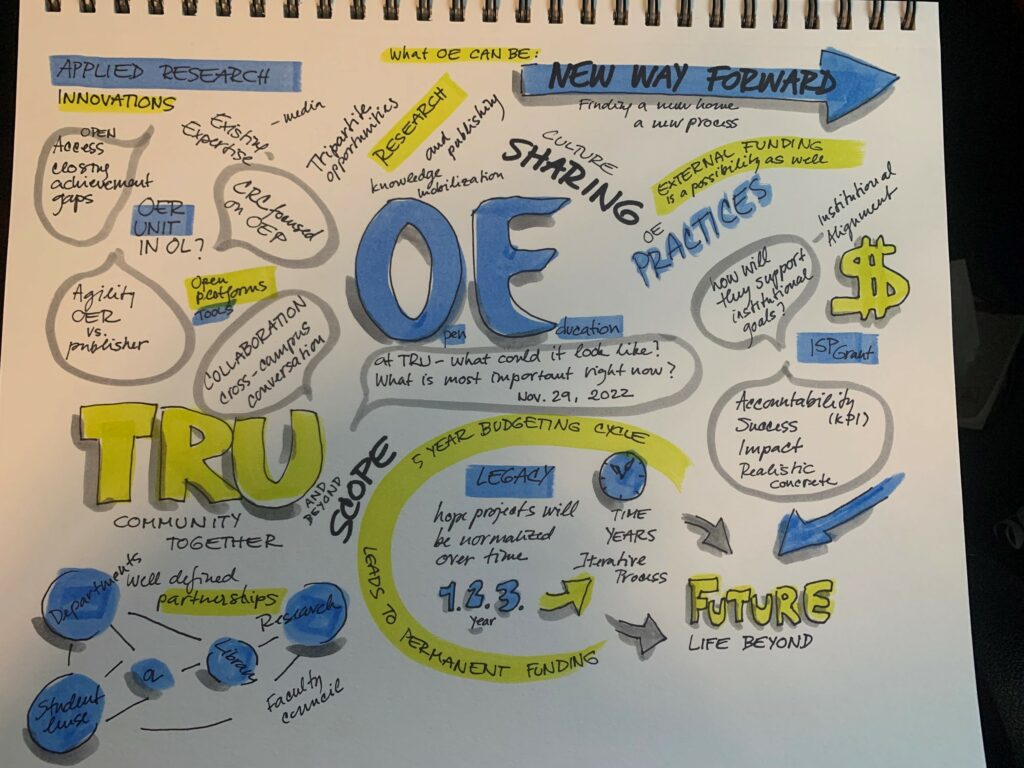 APPLIED RESEARCH
INNOVATIONS
OPEN
Access
closing
achievement
gaps
Existing
Expertise
- media
CRC focused
on OEP
OER
UNIT
IN OL?
Agility
OER
vs.
publisher
Open
platforms
TOOLS
COLLABORATION
cross-campus
conversation
What OE CAN BE:
NEW WAY FORWARD
Finding a new home
a new process
Tripartite
opportunities
RESEARCH
and publishing
knowledge
mobilization
CULTURE
SHARING
OE
PRACTICES
EXTERNAL FUNDING
is a possibility as well
- Institutional
Alignment
$
how will
they support
institutional
goals?
ISP Grant
Accountability
(KPI)
Success
Impact
Realistic
concrete
OE
Open Education
at TRU - what could it look like?
What is most important right now?
Nov. 29, 2022
TRU
AND
BEYOND
SCOPE
COMMUNITY
TOGETHER
Departments
well defined
partnerships
Research
Library
a
Student
Faculty
council
5 YEAR BUDGETING CYCLE
LEADS TO PERMANENT FUNDING
LEGACY
hope projects will
be normalized
over time
TIME
YEARS
Iterative
Process
1.2.3.
year
FUTURE
LIFE BEYOND